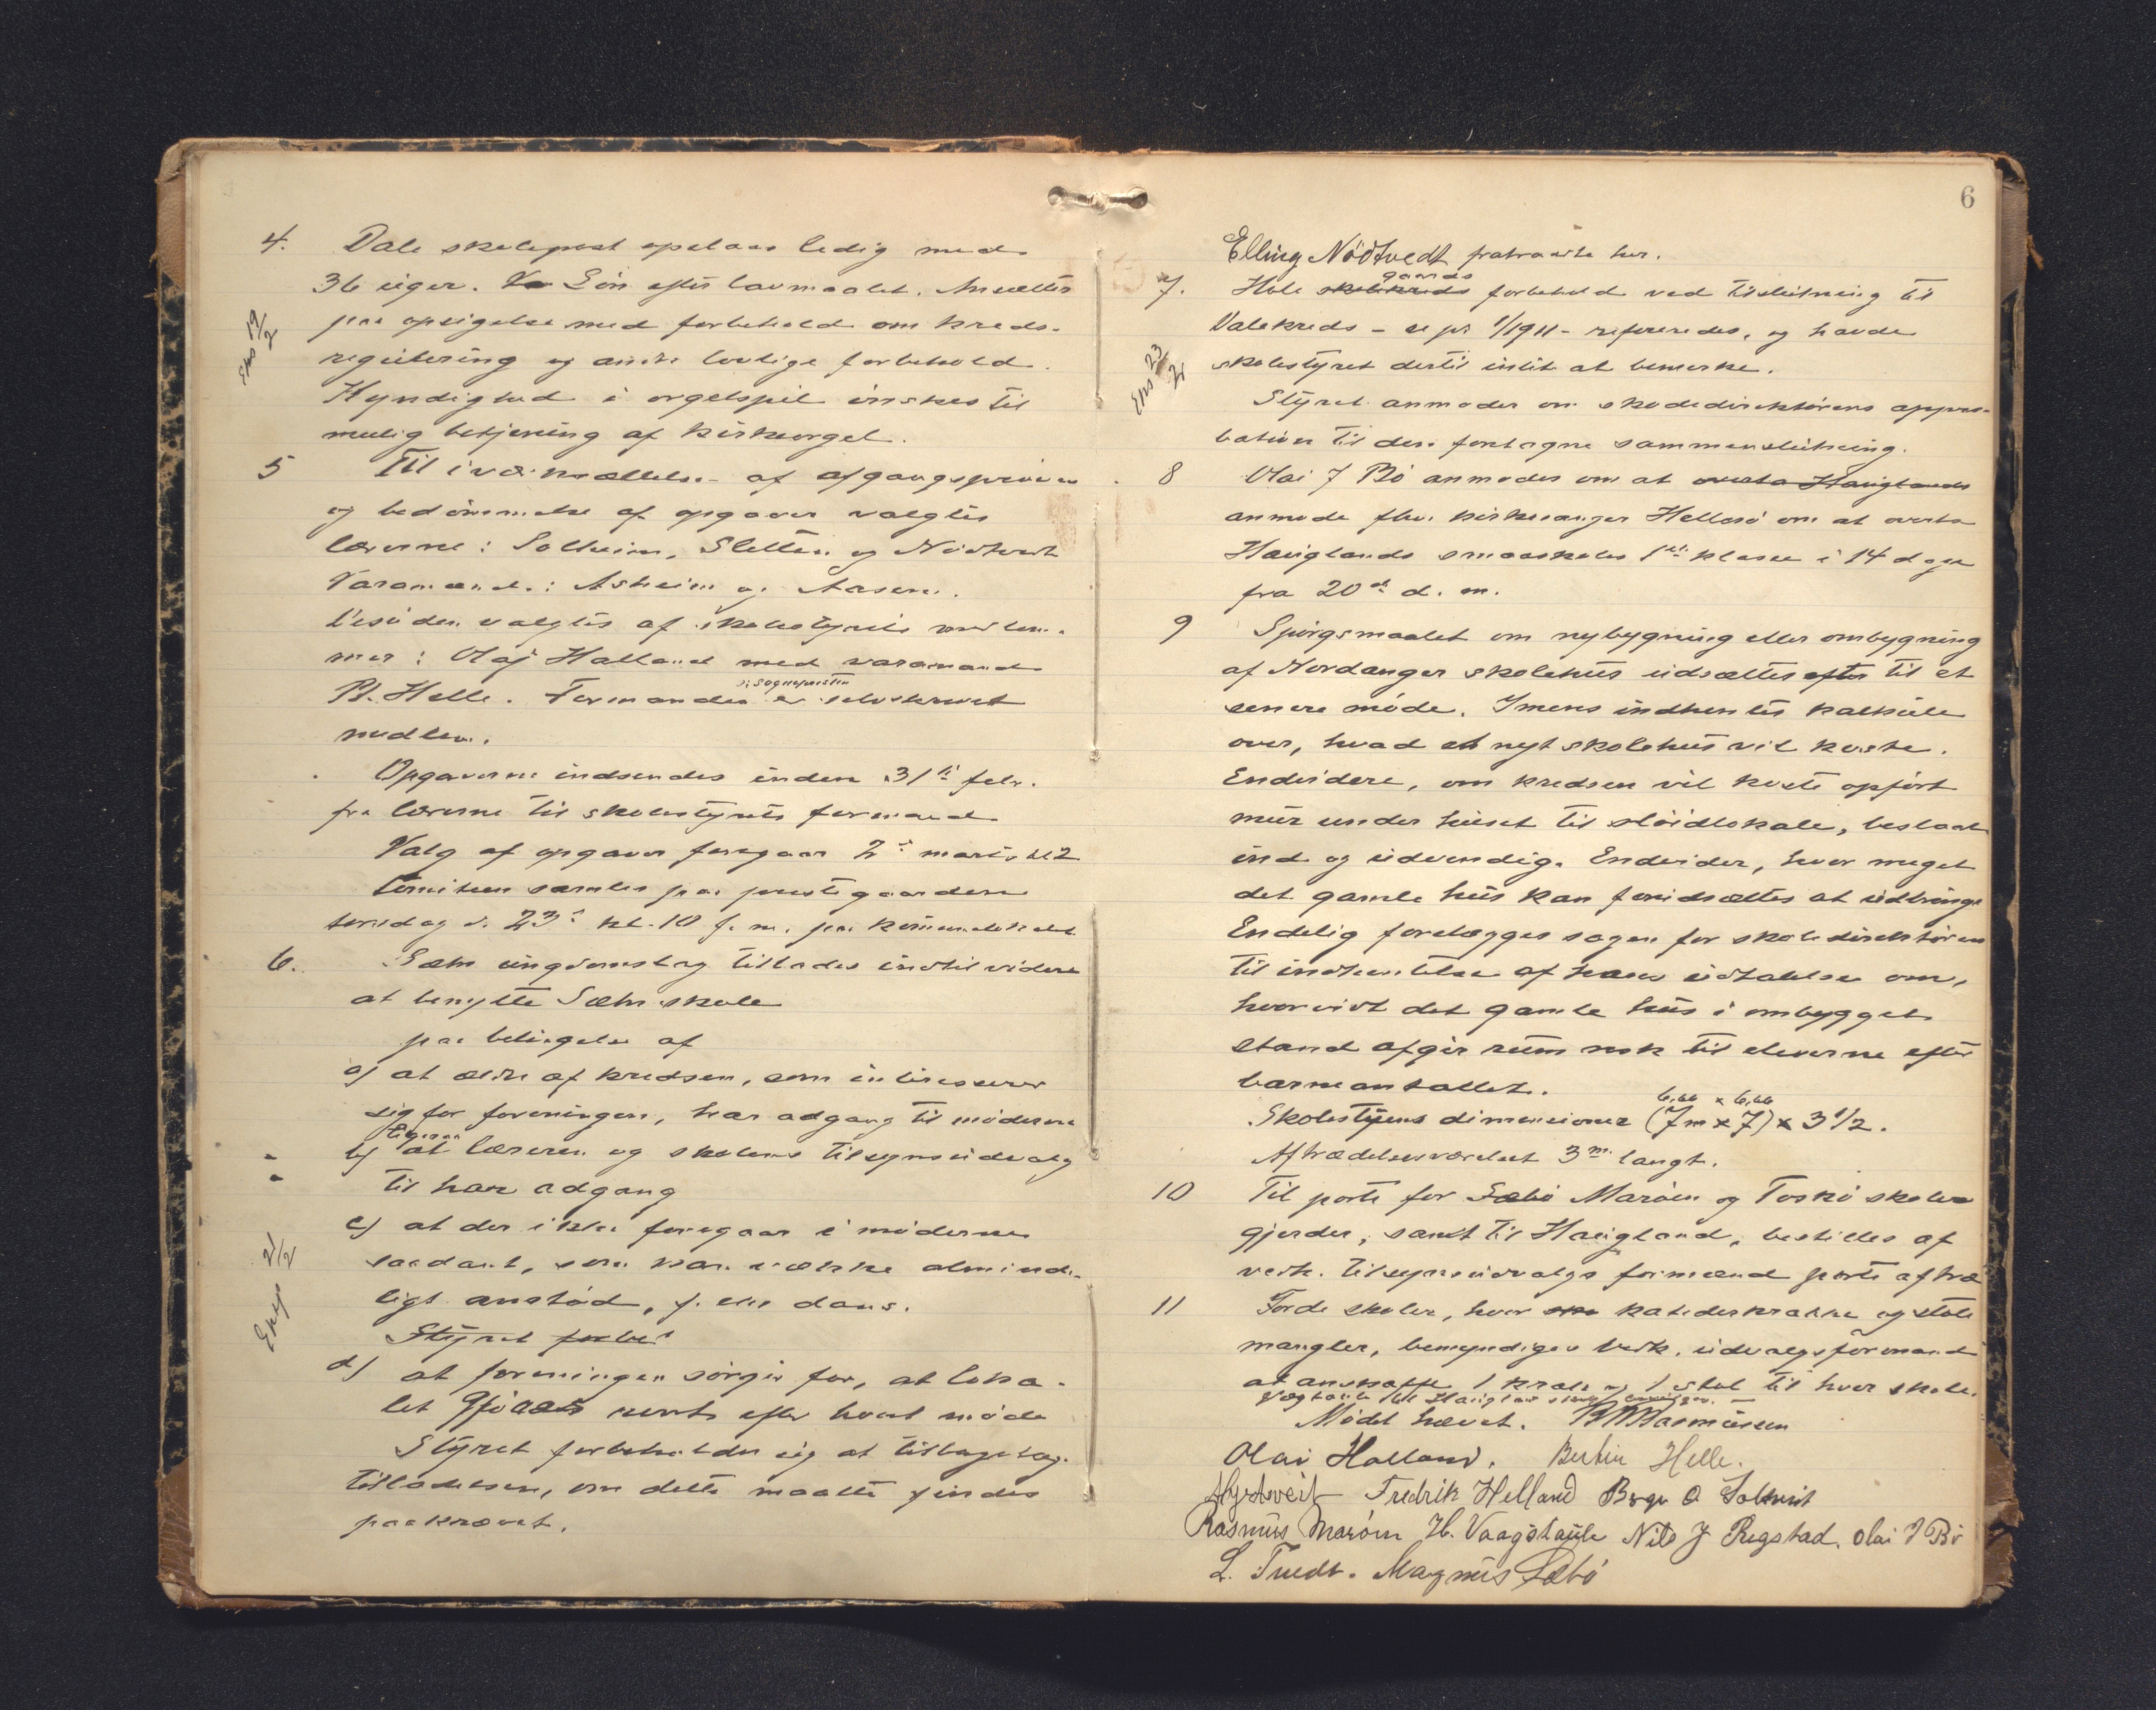 4. Dale skolepost opslaaes ledig med
36 uger. Løn efter lavmaalet. Ansættes
Eksp 19/2
paa opsigelse med forbehold om kreds-
regulering og andre lovlige forbehold.
Kyndighed i orgelspil ønskes til
mulig betjening af kirkeorgel.
5 Til iværksættelse af afgangsprøven
og bedømmelse af opgaver valgtes
lærerne: Solheim, Sletten og Nødtvedt
Varamænd: Asheim og Aasen.
Desuden valgtes af skolestyrets medlem-
mer: Olaj Halland med varamand
B. Helle. Formanden er selvskrevet
ɔ: sognepresten
medlem.
Opgaverne indsendes inden 31te febr.
fra lærerne til skolestyrets formand
Valg af opgaver foregaar 2den marts
Komiteen samles paa prestegaarden
torsdag d. 23de kl. 10 f. m. paa kommunelokalet
6. Sæbø ungdomslag tillades indtil videre
at benytte Sæbø skole
paa betingelse af
a) at ældre af kredsen, som interesserer
sig for foreningen, har adgang til møderne
ligesaa
b) at læreren og skolens tilsynsudvalg
til har adgang
c) at der ikke foregaar i møderne
saadant, som kan vække alminde-
Eksp 21/2
ligt anstød, f. eks dans.
Styret forbe
d) at foreningen sørger for, at loka-
let gjøres rent efter hvert møde
Styret forbeholder sig at tilbagetage
tilladelsen, om dette maatte findes
paakrævet.
6
Elling Nødtvedt fratraadte her.
gaards
7. Hole skolekreds forbehold ved tilslutning til
Dalekreds - se pr 1/1911 - refereredes, og havde
Eksp 23/2
skolestyret dertil intet at bemerke.
Styret anmoder om skoledirektørens appro-
bation til den foretagne sammenslutning.
8 Olai J Bø anmodes om at overta Hauglands
anmode fhv. kirkesanger Hellesø om at overta
Hauglands smaaskoles 1ste klasse i 14 dage
fra 20de d. m.
9 Spørgsmaalet om nybygning eller ombygning
af Nordanger skolehus udsættes efter til et
senere møde. Imens indhentes kalkule
over, hvad et nyt skolehus vil koste.
Endvidere, om kredsen vil koste opført
mur under huset til sløidlokale, beslaat
ind og udvendig. Endvider, hvor meget
det gamle hus kan forudsættes at udbringe
Endelig forelægges sagen for skoledirektøren
til indhentelse af hans udtalelse om,
hvorvidt det gamle hus i ombygget
stand afgir rum nok til eleverne efter
barneantallet.
6,66 x 6,66
Skolestuens dimensioner (7m x 7) x 3 1/2.
Aftrædelsesværelset 3m langt.
10 Til porte for Sæbø Marøen og Toskø skoler
gjerder, samt til Haugland, bestilles af
vedk. tilsynsudvalgs formænd porte af træ
11 Forde skoler, hvor katederkrakke og stole
mangler, bemyndiges vedk. udvalgsformænd
at anskaffe 1 krak og 1 stol til hver skole.
Vægtavle til Haugland skole
Mødet hævet. Rasmussen
Olai Halland. Bertin Helle.
Fredrik Helland Birger O Solheim
Rasmus Marøen H. Vaagstaule Nils J Regstad. Olai J Bø
L. Tvedt. Magnus Sæbø